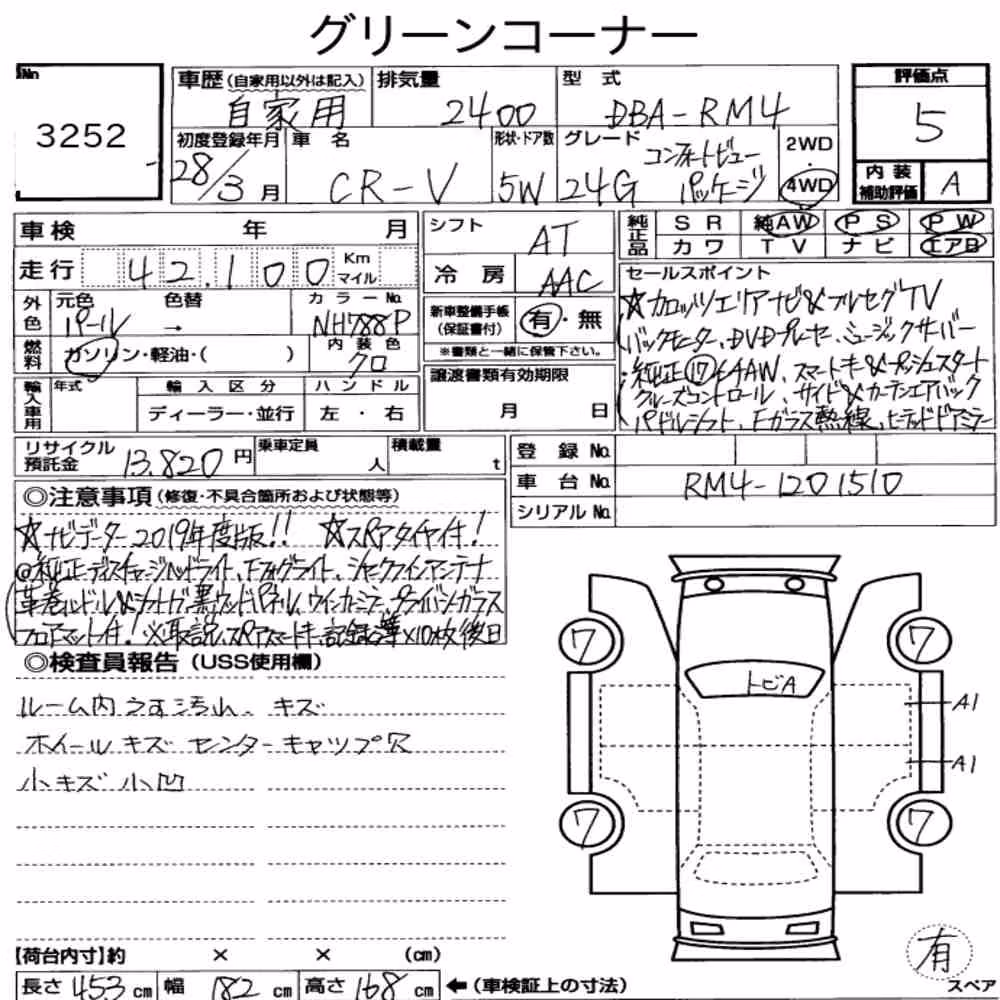 グリーンコーナー
No
3252
車歴(自家用以外は記入) 自家用
排気量 2400
型式 DBA-RM4
評価点 5
初度登録年月 28/3月
車名 CR-V
形状・ドア数 5W
グレード 24G コンフォートビューパッケージ
2WD・4WD
内装補助評価 A
車検 年 月
シフト AT
純正品 SR 純AW PS PW
カワ TV ナビ エアB
走行 42,100 Km マイル
冷房 AAC
外色 元色 パール 色替 →
カラーNo. NH788P
新車整備手帳(保証書付) 有・無
※書類と一緒に保管下さい。
燃料 ガソリン・軽油・( )
内装色 クロ
輸入車用 年式 輸入区分 ハンドル
ディーラー・並行 左・右
譲渡書類有効期限
月 日
セールスポイント
☆カロッツェリアナビ&フルセグTV
バックモニター、DVDプレーヤー、ミュージックサーバー
純正⑰AAW、スマートキー&プッシュスタート
クルーズコントロール、サイド&カーテンエアバック
パドルシフト、Fガラス熱線、ヒーテッドドアミラー
リサイクル預託金 13,820円
乗車定員 人
積載量 t
登録No.
車台No. RM4-1201510
シリアルNo.
◎注意事項(修復・不具合箇所および状態等)
☆ナビデーター2019年度版!! ☆スペアタイヤ付!
◎純正ディスチャージヘッドライト、Fフォグライト、シャークフィンアンテナ
革巻ハンドル&シフトノブ、黒ウッドパネル、ウインカーミラー、プライバシーガラス
フロアマット付! ※取説、スペアスマートキー、記録簿×10枚後日
◎検査員報告(USS使用欄)
ルーム内うす汚れ、キズ
ホイールキズ センターキャップ穴
小キズ 小凹
トビA
7
7
A1
A1
7
7
【荷台内寸】約 × × (cm)
長さ 453 cm 幅 182 cm 高さ 168 cm ←(車検証上の寸法)
有
スペア